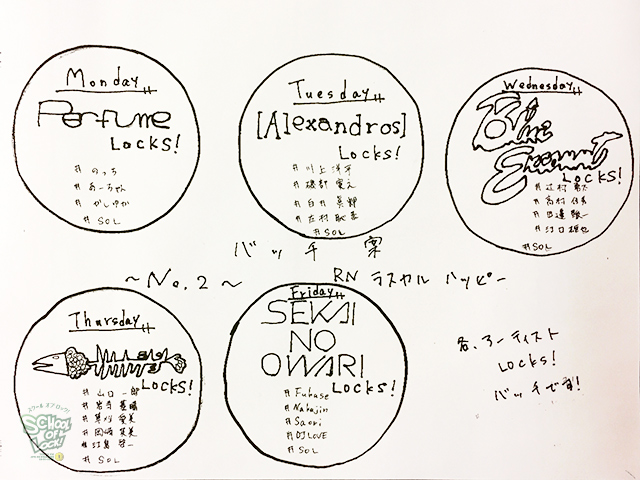 Monday
Perfume
LOCKS!
# のっち
# あーちゃん
# かしゆか
# SOL
Tuesday
[Alexandros]
LOCKS!
# 川上 洋平
# 磯部 寛之
# 白井 眞輝
# 庄村 聡泰
# SOL
Wednesday
Blue
Encount
LOCKS!
# 辻村 勇太
# 高村 佳秀
# 田邊 駿一
# 江口 雄也
# SOL
バッチ 案
～No.2～ RN ラスカル ハッピー
Thursday
LOCKS!
# 山口 一郎
# 岩寺 基晴
# 草刈 愛美
# 岡崎 英美
# 江島 啓一
# SOL
Friday
SEKAI
NO
OWARI
LOCKS!
# Fukase
# Nakajin
# Saori
# DJ LOVE
# SOL
各、アーティスト
LOCKS!
バッチです!
スクール オブ ロック!
SCHOOL
OF
LOCK!